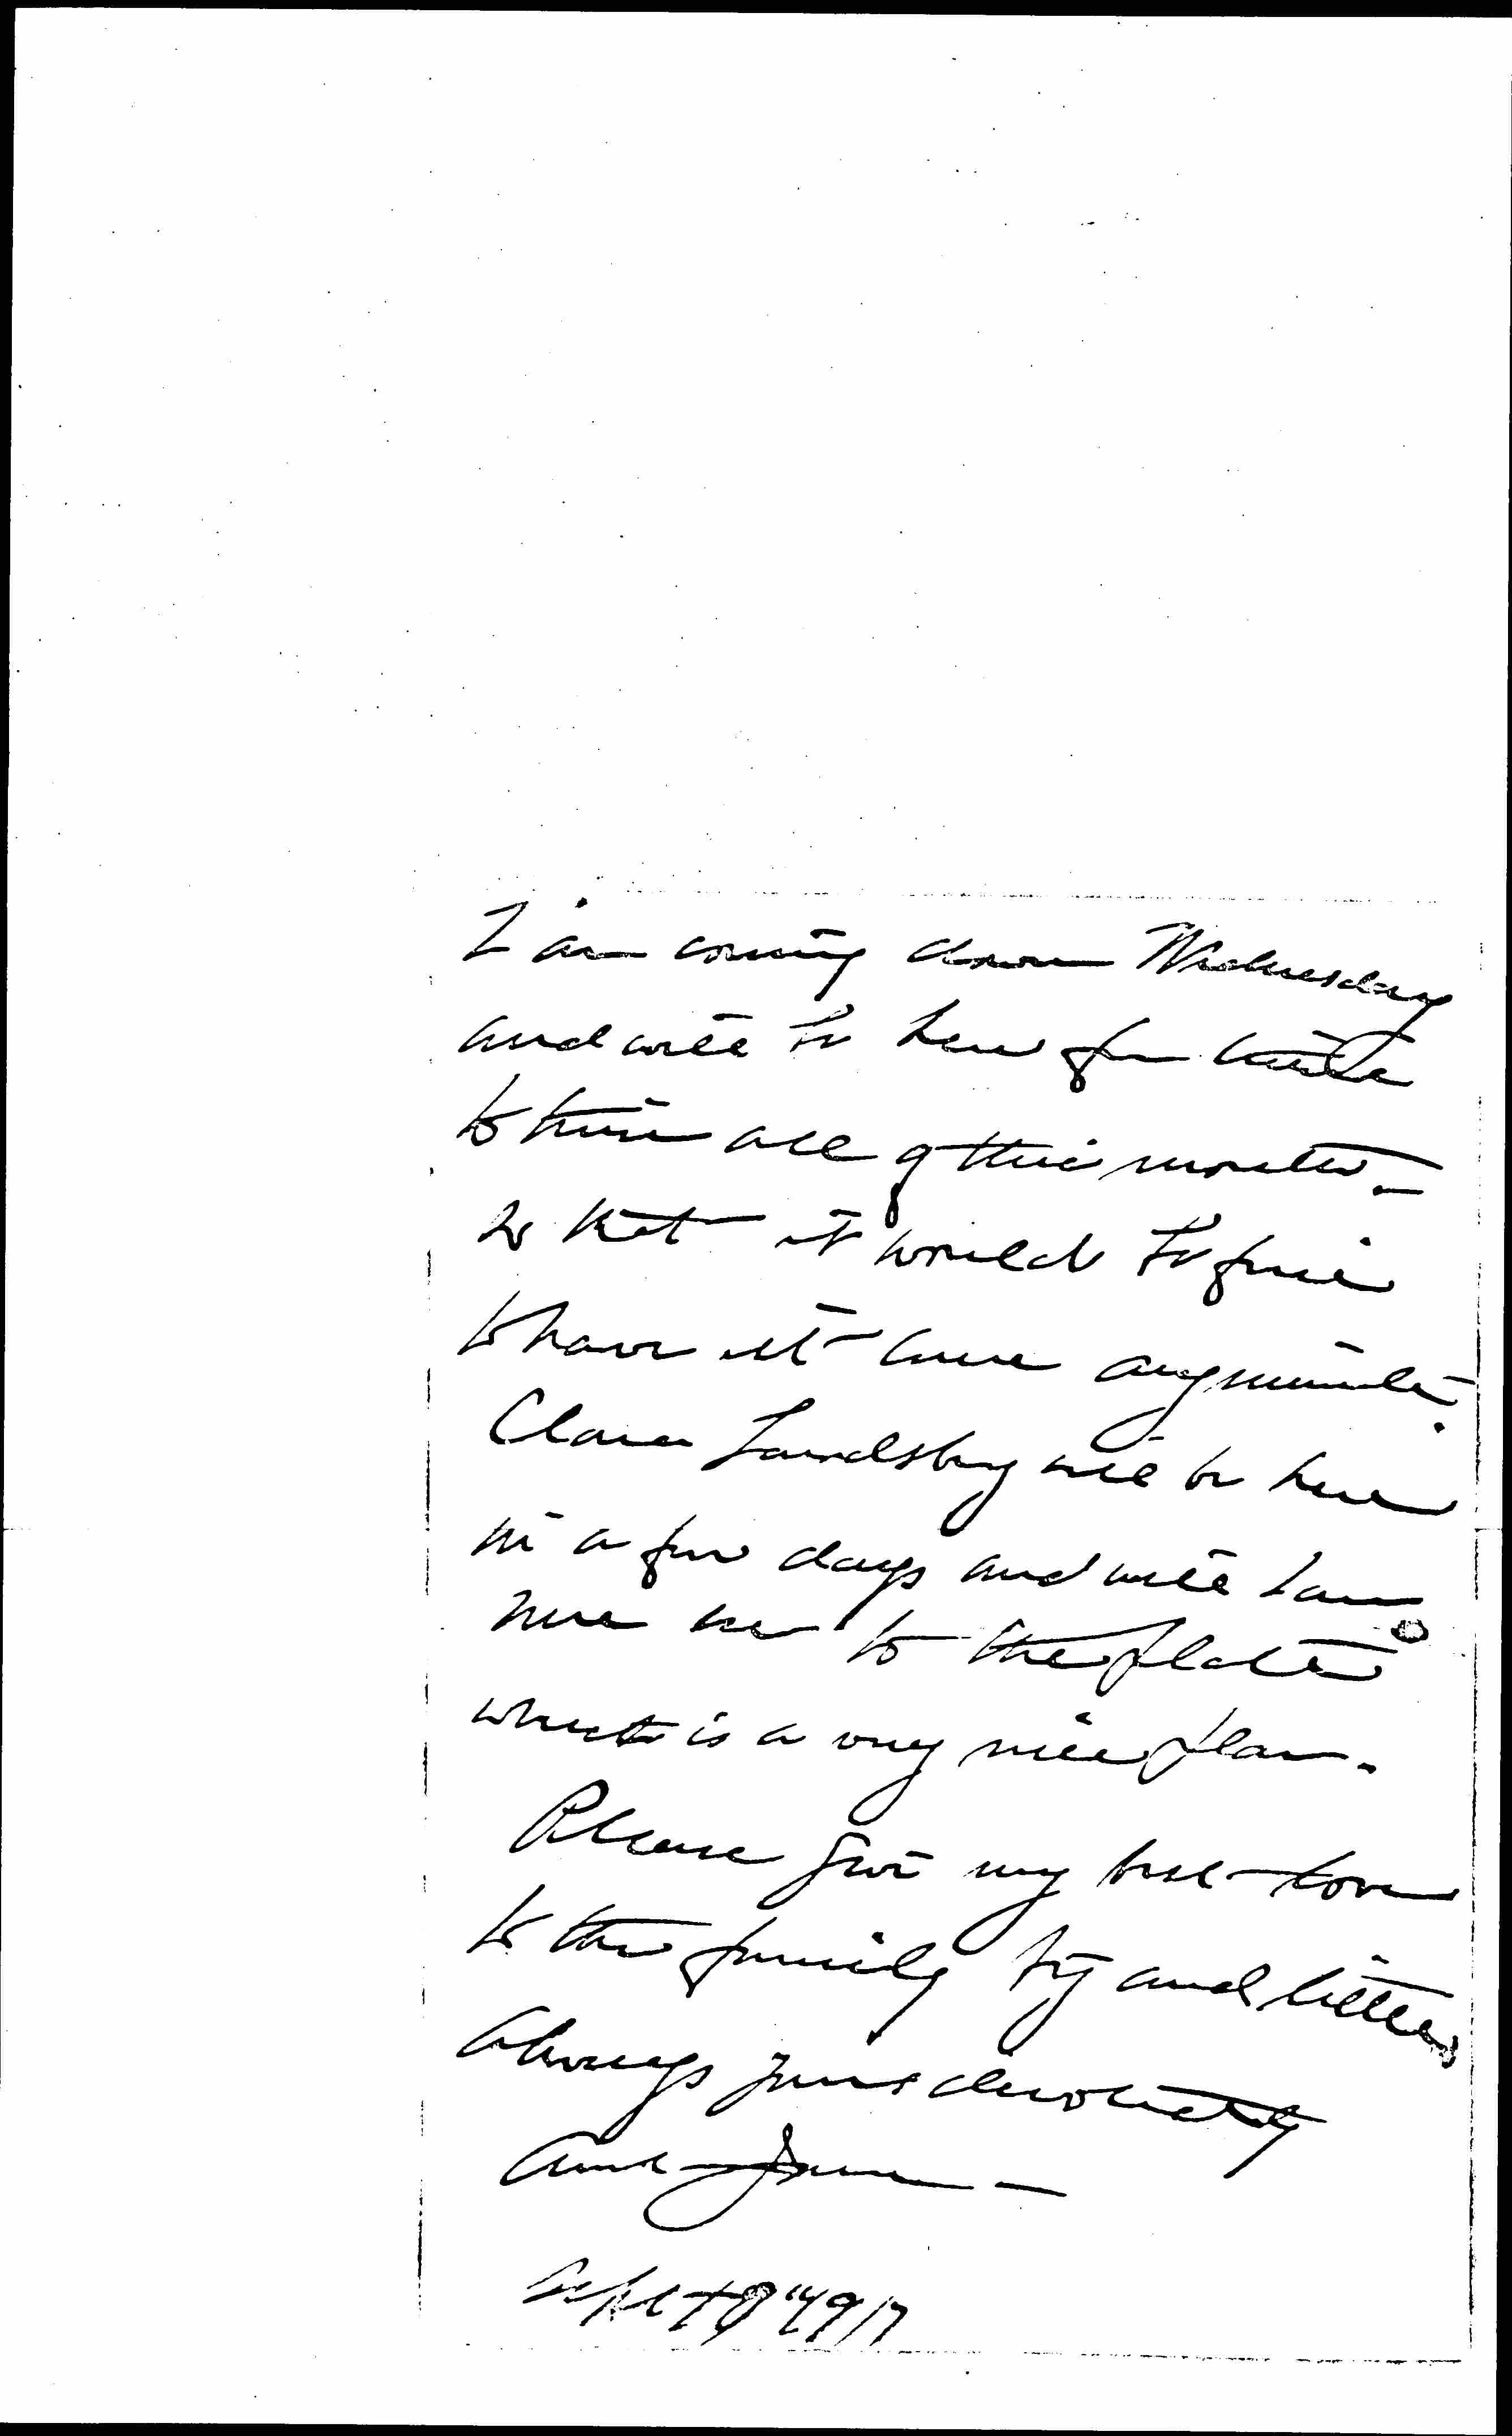 I am coming down Wednesday
and will be here for
all of this month —
so that it would be fine
to have it come any minute.
Clara Landsberg will be here
in a few days and will
move me to the
which is a very nice plan.
Please give my best love
to the family big and little
Always yours devotedly
Aunt Jane —
Sept 1917